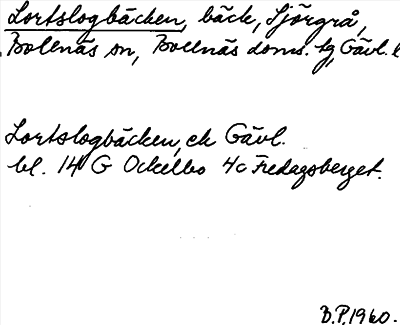 Lortslogbäcken, bäck, Sjörgrå,
Bollnäs sn, Bollnäs doms. hg, Gävl. l
Lortslogbäcken, ek Gävl.
bl. 14 G Ockelbo 4c Fredagsberget.
B.P. 1960.